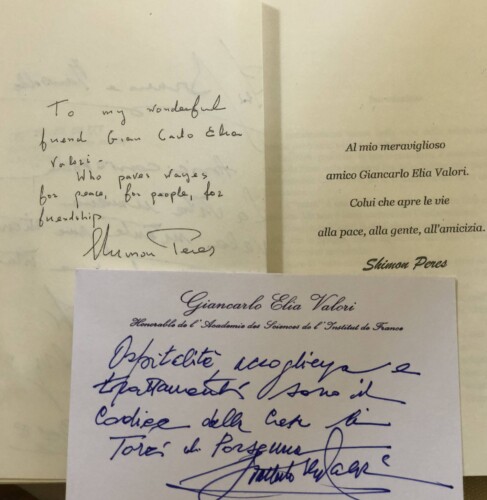 To my wonderful
friend Gian Carlo Elia
Valori -
Who paves wayes
for peace, for people, for
friendship
Shimon Peres
Al mio meraviglioso
amico Giancarlo Elia Valori.
Colui che apre le vie
alla pace, alla gente, all'amicizia.
Shimon Peres
Giancarlo Elia Valori
Honorable de l'Academie des Sciences de l'Institut de France
Ospitalità accoglienza e
sono il
Codice della Casa
Torri di Porsenna